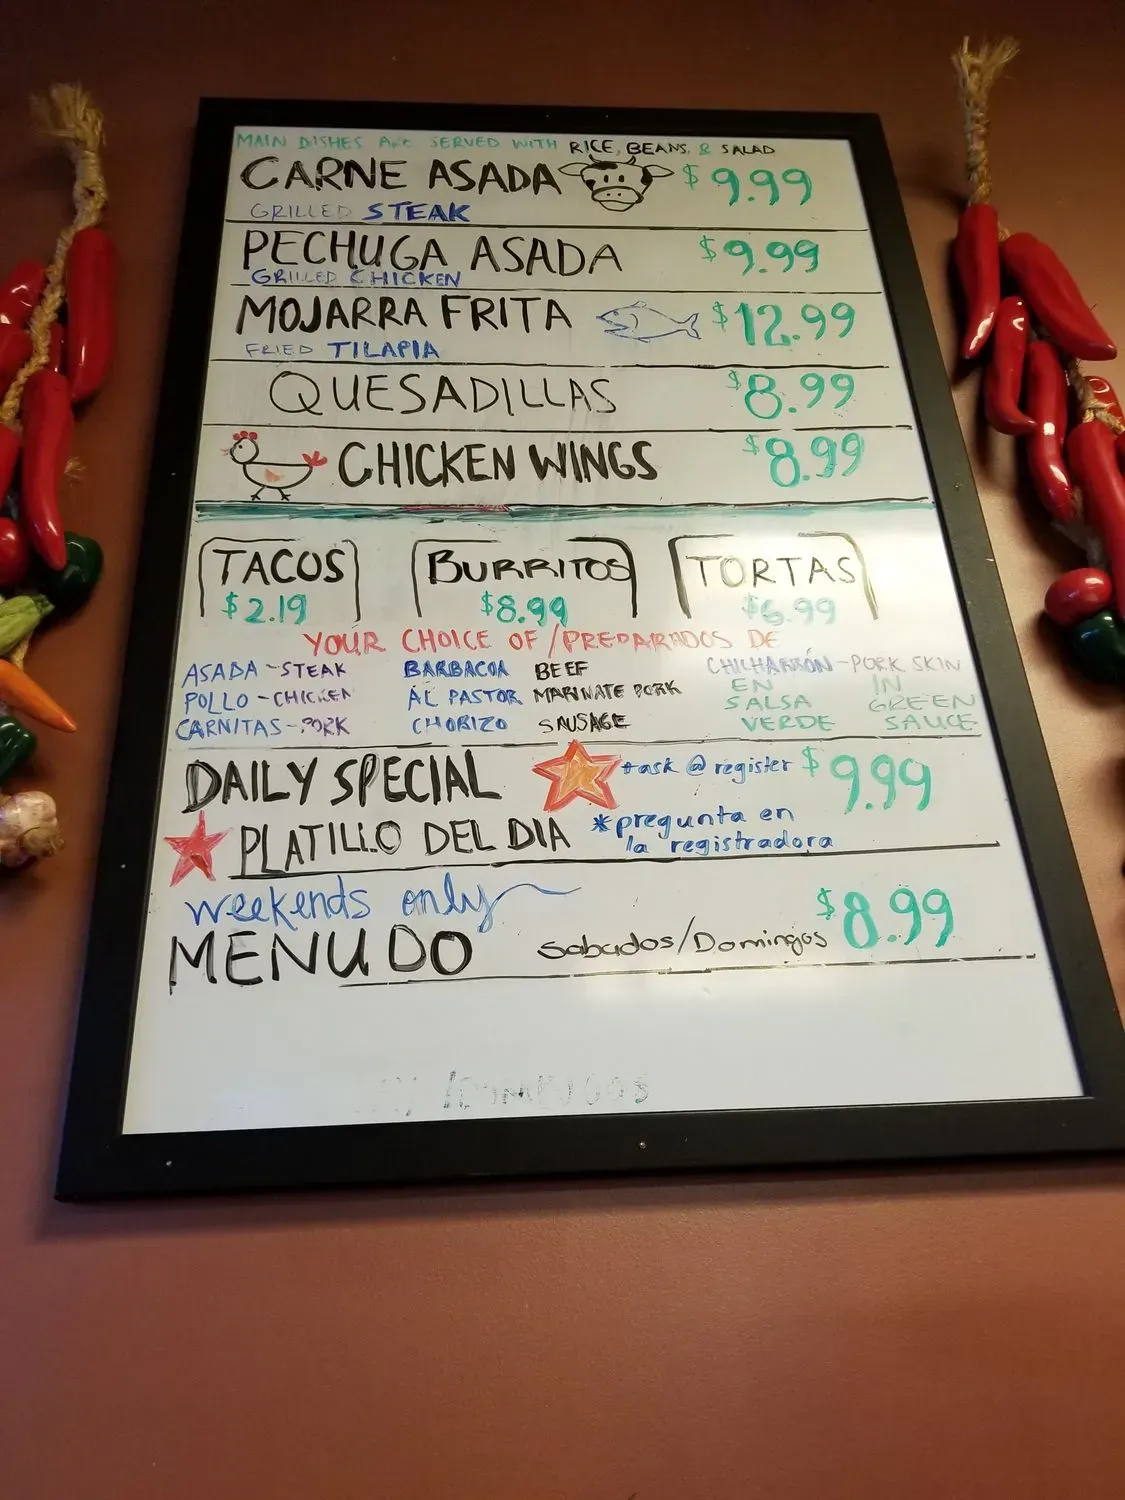 MAIN DISHES ARE SERVED WITH RICE, BEANS, & SALAD
CARNE ASADA $9.99
GRILLED STEAK
PECHUGA ASADA $9.99
GRILLED CHICKEN
MOJARRA FRITA $12.99
FRIED TILAPIA
QUESADILLAS $8.99
CHICKEN WINGS $8.99
TACOS BURRITOS TORTAS
$2.19 $8.99 $6.99
YOUR CHOICE OF/PREPARADOS DE
ASADA-STEAK BARBACOA BEEF CHICHARRÓN-PORK SKIN
POLLO-CHICKEN AL PASTOR MARINATE PORK EN IN
SALSA GREEN
CARNITAS-PORK CHORIZO SAUSAGE VERDE SAUCE
DAILY SPECIAL *ask @ register $9.99
PLATILLO DEL DIA *pregunta en
la registradora
weekends only
MENUDO Sabados/Domingos $8.99